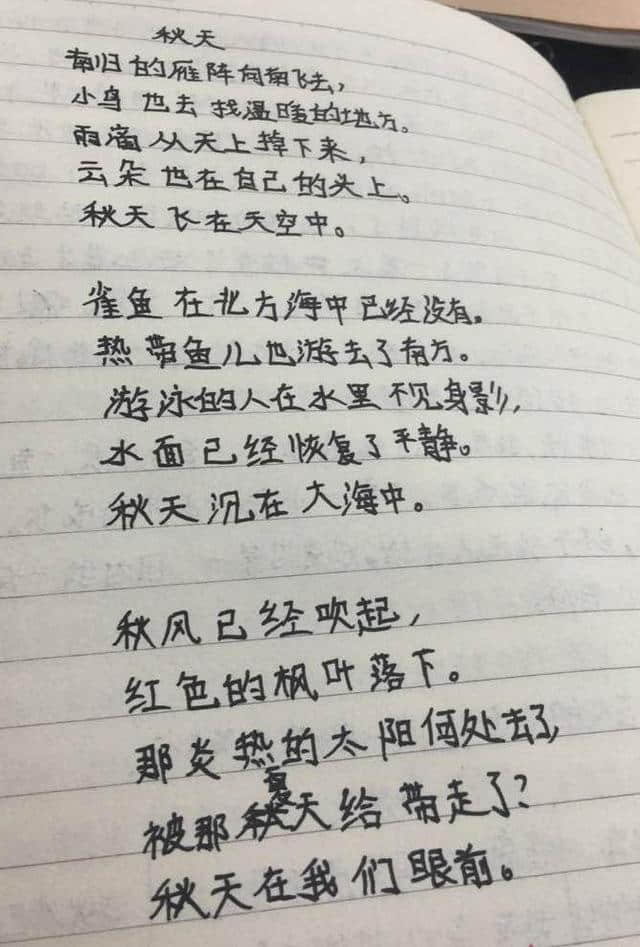 秋天
南归的雁阵向南飞去,
小鸟也去找温暖的地方。
雨滴从天上掉下来,
云朵也在自己的头上。
秋天飞在天空中。
雀鱼在北方海中已经没有。
热带鱼儿也游去了南方。
游泳的人在水里不见身影,
水面已经恢复了平静。
秋天沉在大海中。
秋风已经吹起,
红色的枫叶落下。
那炎热的太阳何处去了,
被那夏天给带走了?
秋天在我们眼前。